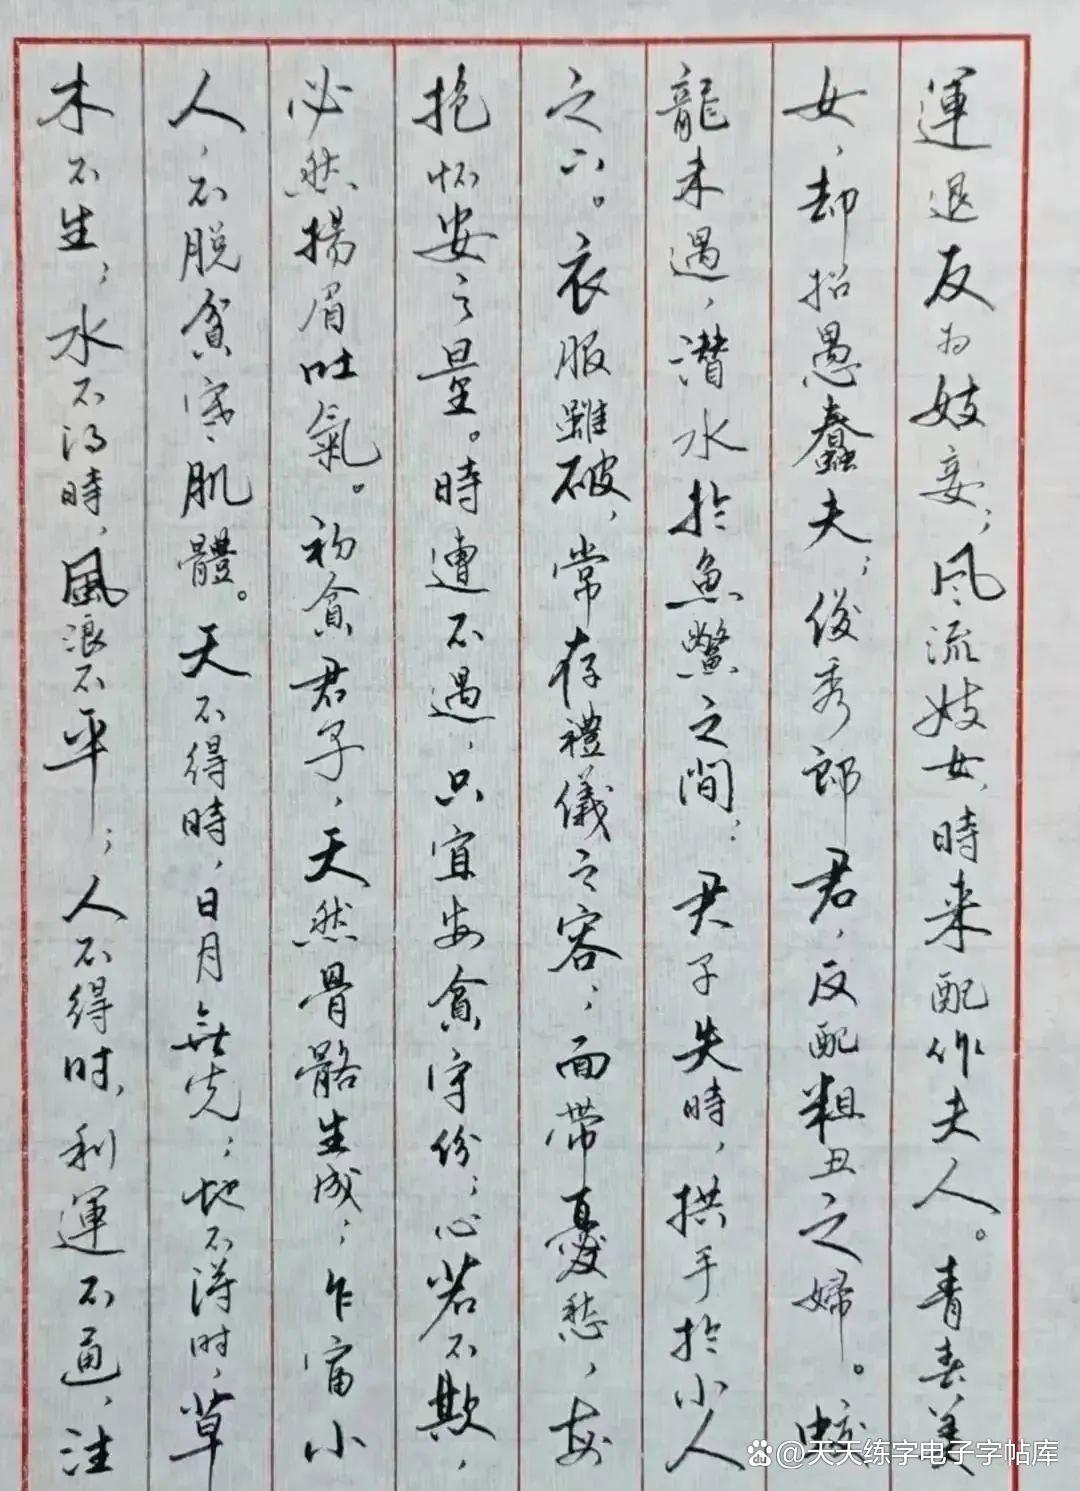 運退反为妓妾；风流妓女，時来配作夫人。青春美
女，却招愚蠢夫；俊秀郎君，反配粗丑之婦。蛟
龍未遇，潜水於魚鱉之间；君子失時，拱手於小人
之下。衣服雖破，常存禮儀之容；面带憂愁，每
抱怀安之量。時遭不遇，只宜安贫守份；心若不欺，
必然揚眉吐氣。初贫君子，天然骨骼生成；乍富小
人，不脱贫寒肌體。天不得時，日月无光；地不得时，草
木不生；水不得時，風浪不平；人不得时，利運不通，注
@天天练字电子字帖库